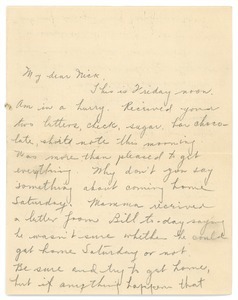 My dear Nick,
This is Friday noon.
Am in a hurry. Received your
two letters, check, sugar, bar choco-
late, short note this morning
Was more than pleased to get
everything. Why don't you say
something about coming home
Saturday? Mamma received
a letter from Bill to-day saying
he wasn't sure whether he could
get home Saturday or not
Be sure and try to get home,
but if anything happen that